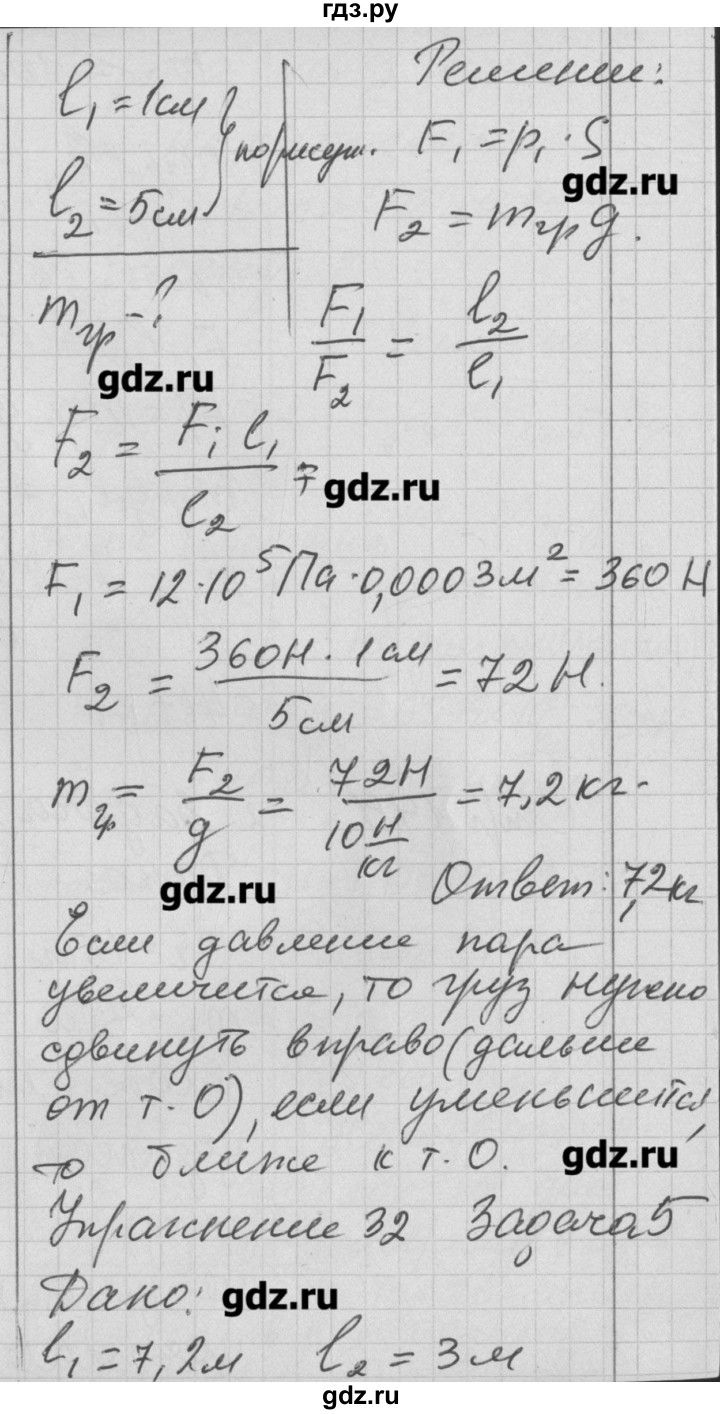 гдз.ру
l₁ = 1см } по рисун.
l₂ = 5см
m гр - ?
Решение:
F₁ = p₁ · S
gdz.ru
F₂ = m гр g.
F₁/F₂ = l₂/l₁
gdz.ru
F₂ = F₁ l₁ / l₂
gdz.ru
F₁ = 12·10⁵ Па · 0,0003 м² = 360 Н
F₂ = 360Н · 1см / 5см = 72 Н.
m гр = F₂/g = 72Н / 10 Н/кг = 7,2 кг.
gdz.ru
Ответ: 7,2 кг
Если давление пара
увеличится, то груз нужно
сдвинуть вправо (дальше
от т. О), если уменьшится,
то ближе к т. О.
gdz.ru
Упражнение 32 Задача 5
Дано:
gdz.ru
l₁ = 7,2м l₂ = 3м
gdz.ru